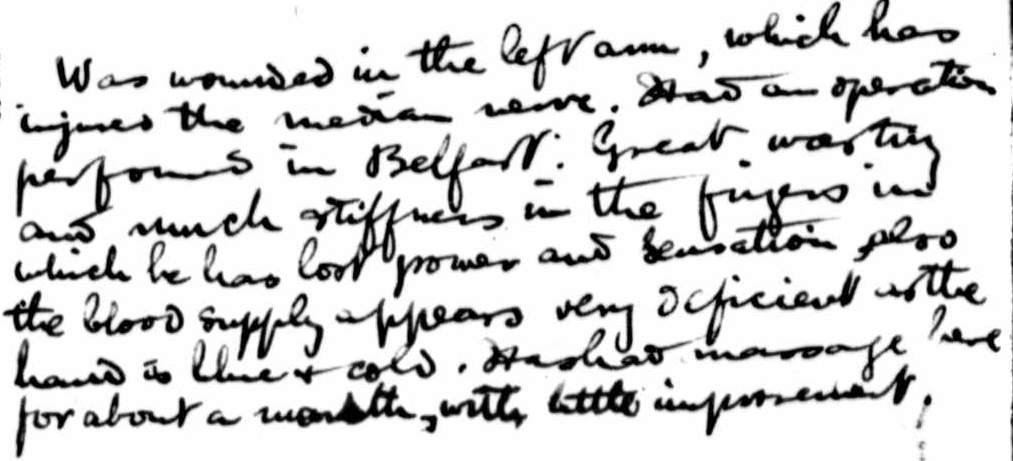 Was wounded in the left arm, which has
injured the median nerve. Had an operation
performed in Belfast. Great wasting
and much stiffness in the fingers in
which he has lost power and sensation, also
the blood supply appears very deficient as the
hand is blue & cold. Has had massage here
for about a month, with little improvement.